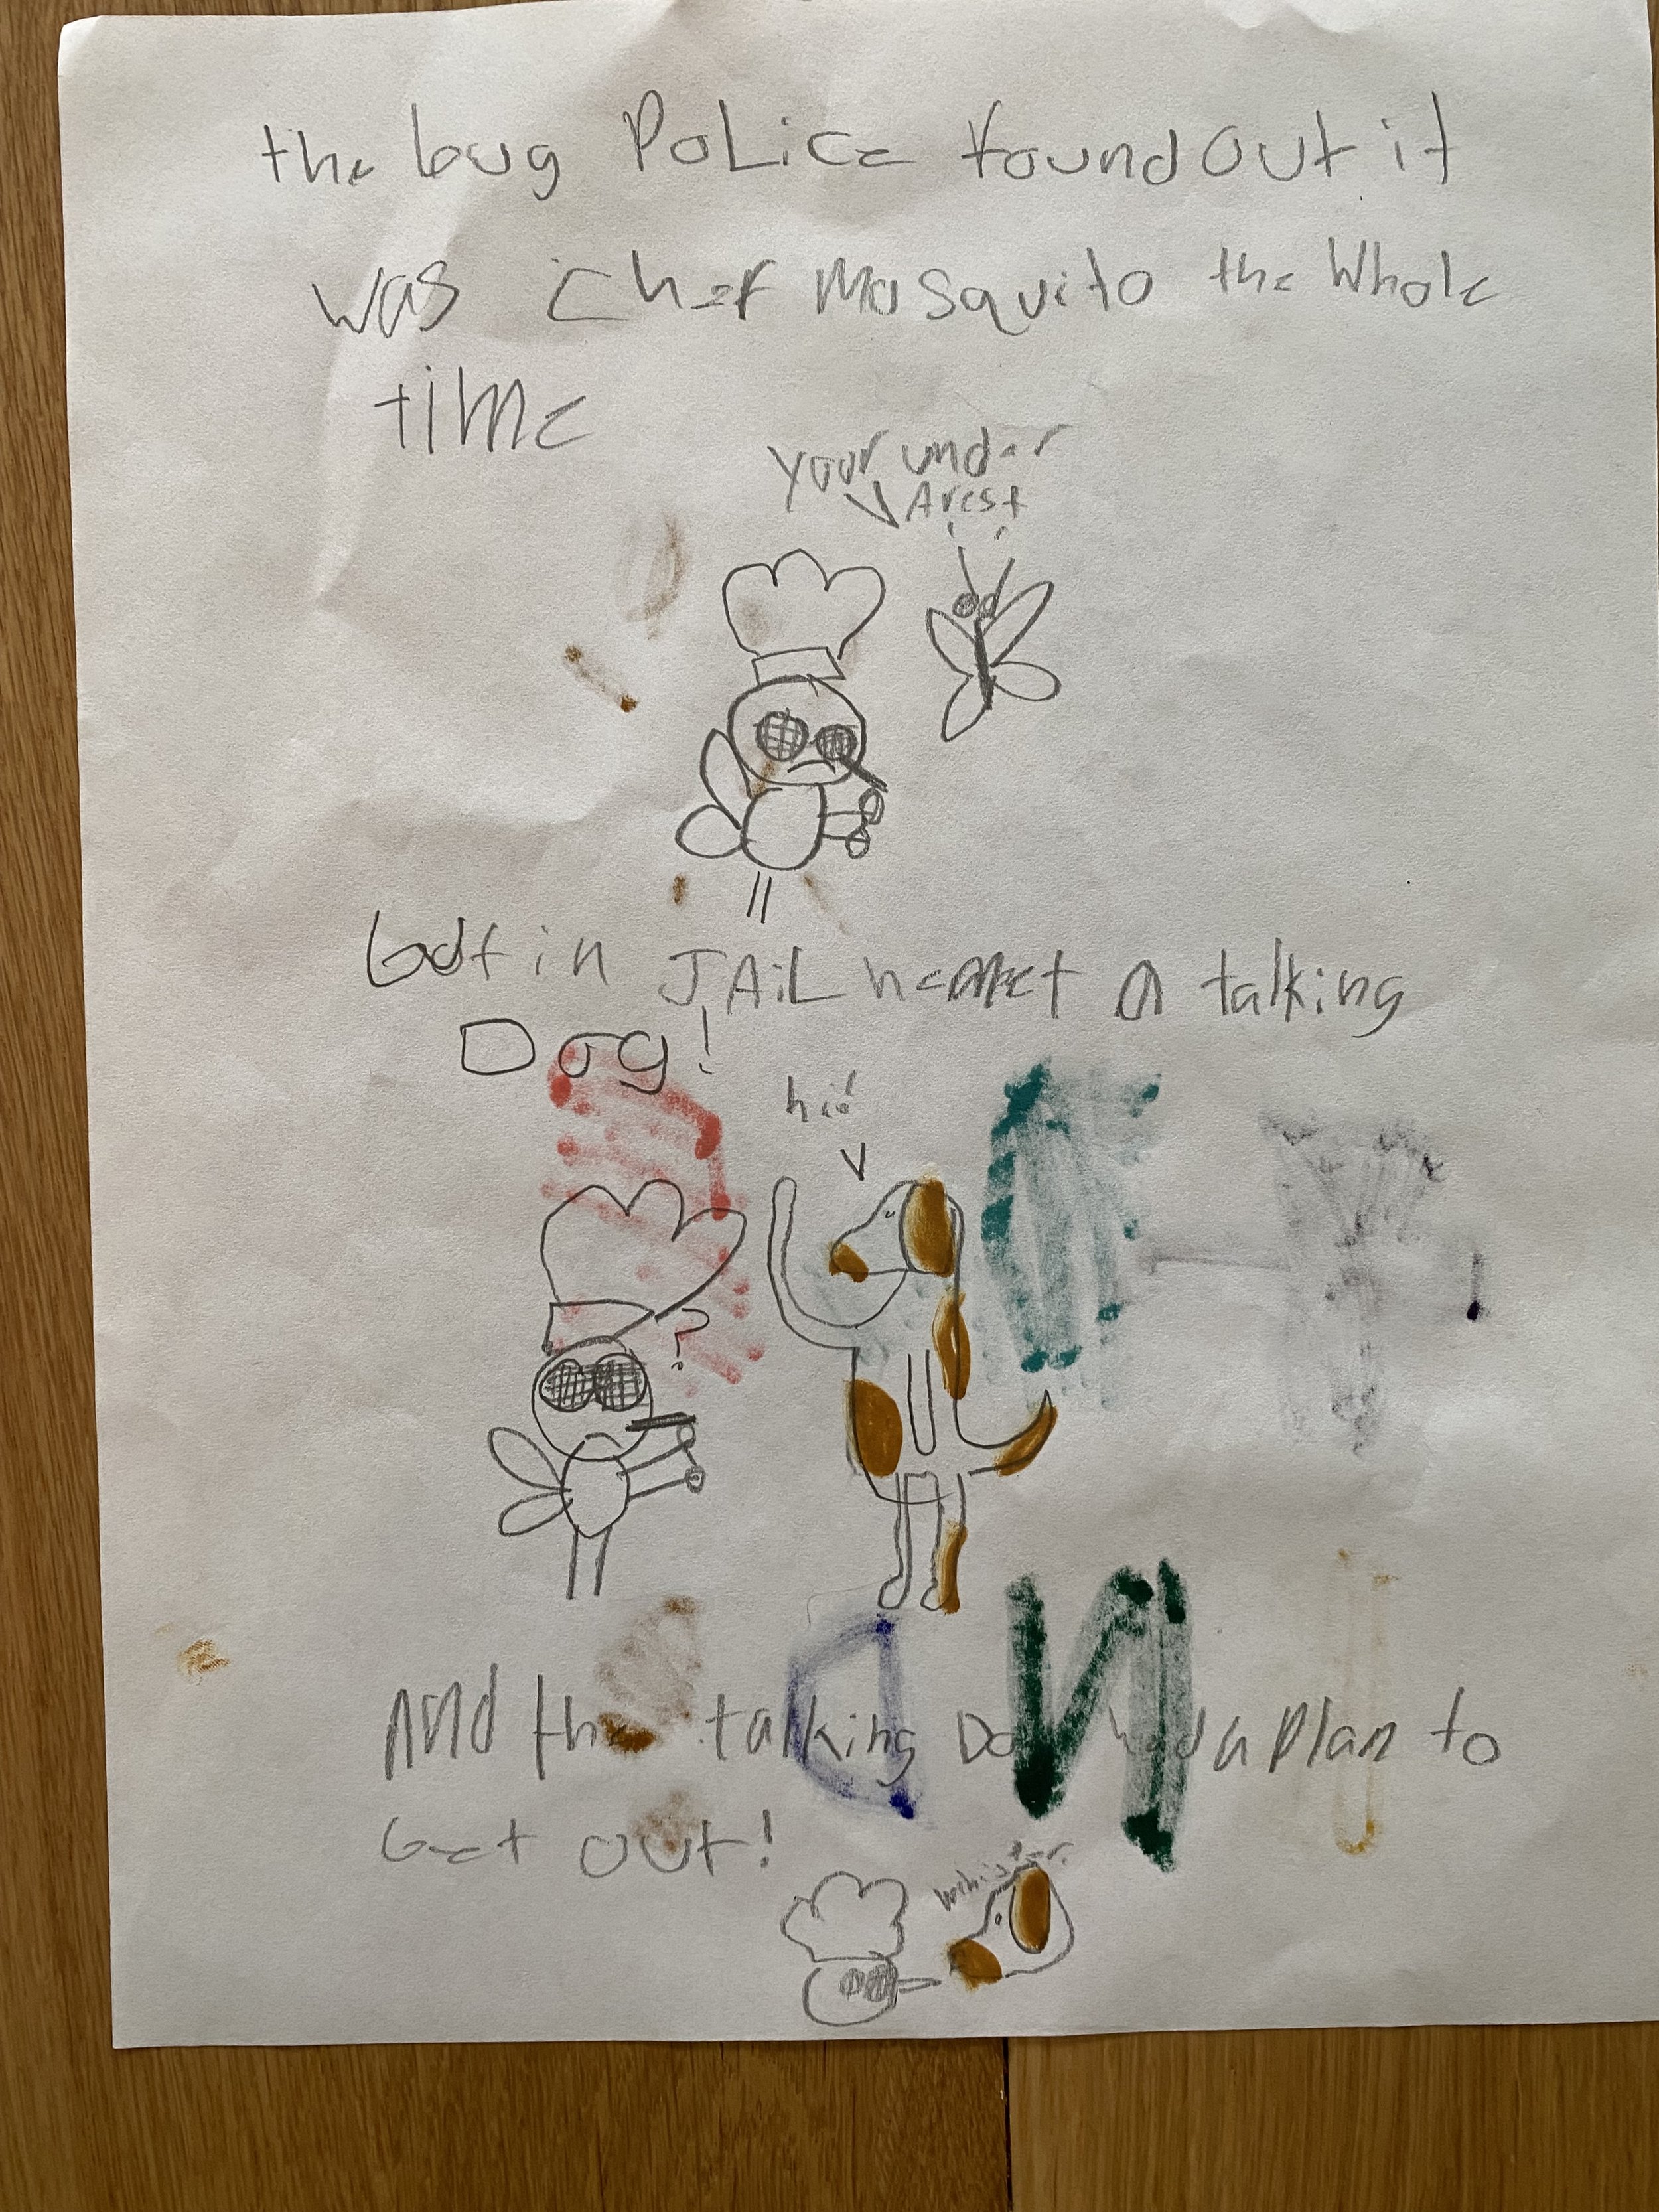 the bug PoLice found out it
was chef Mosquito the Whole
time
Your under
Arest
But in JAiL he met A talking
Dog!
hi!
?
And the talking Do had a plan to
Get out!
whisper